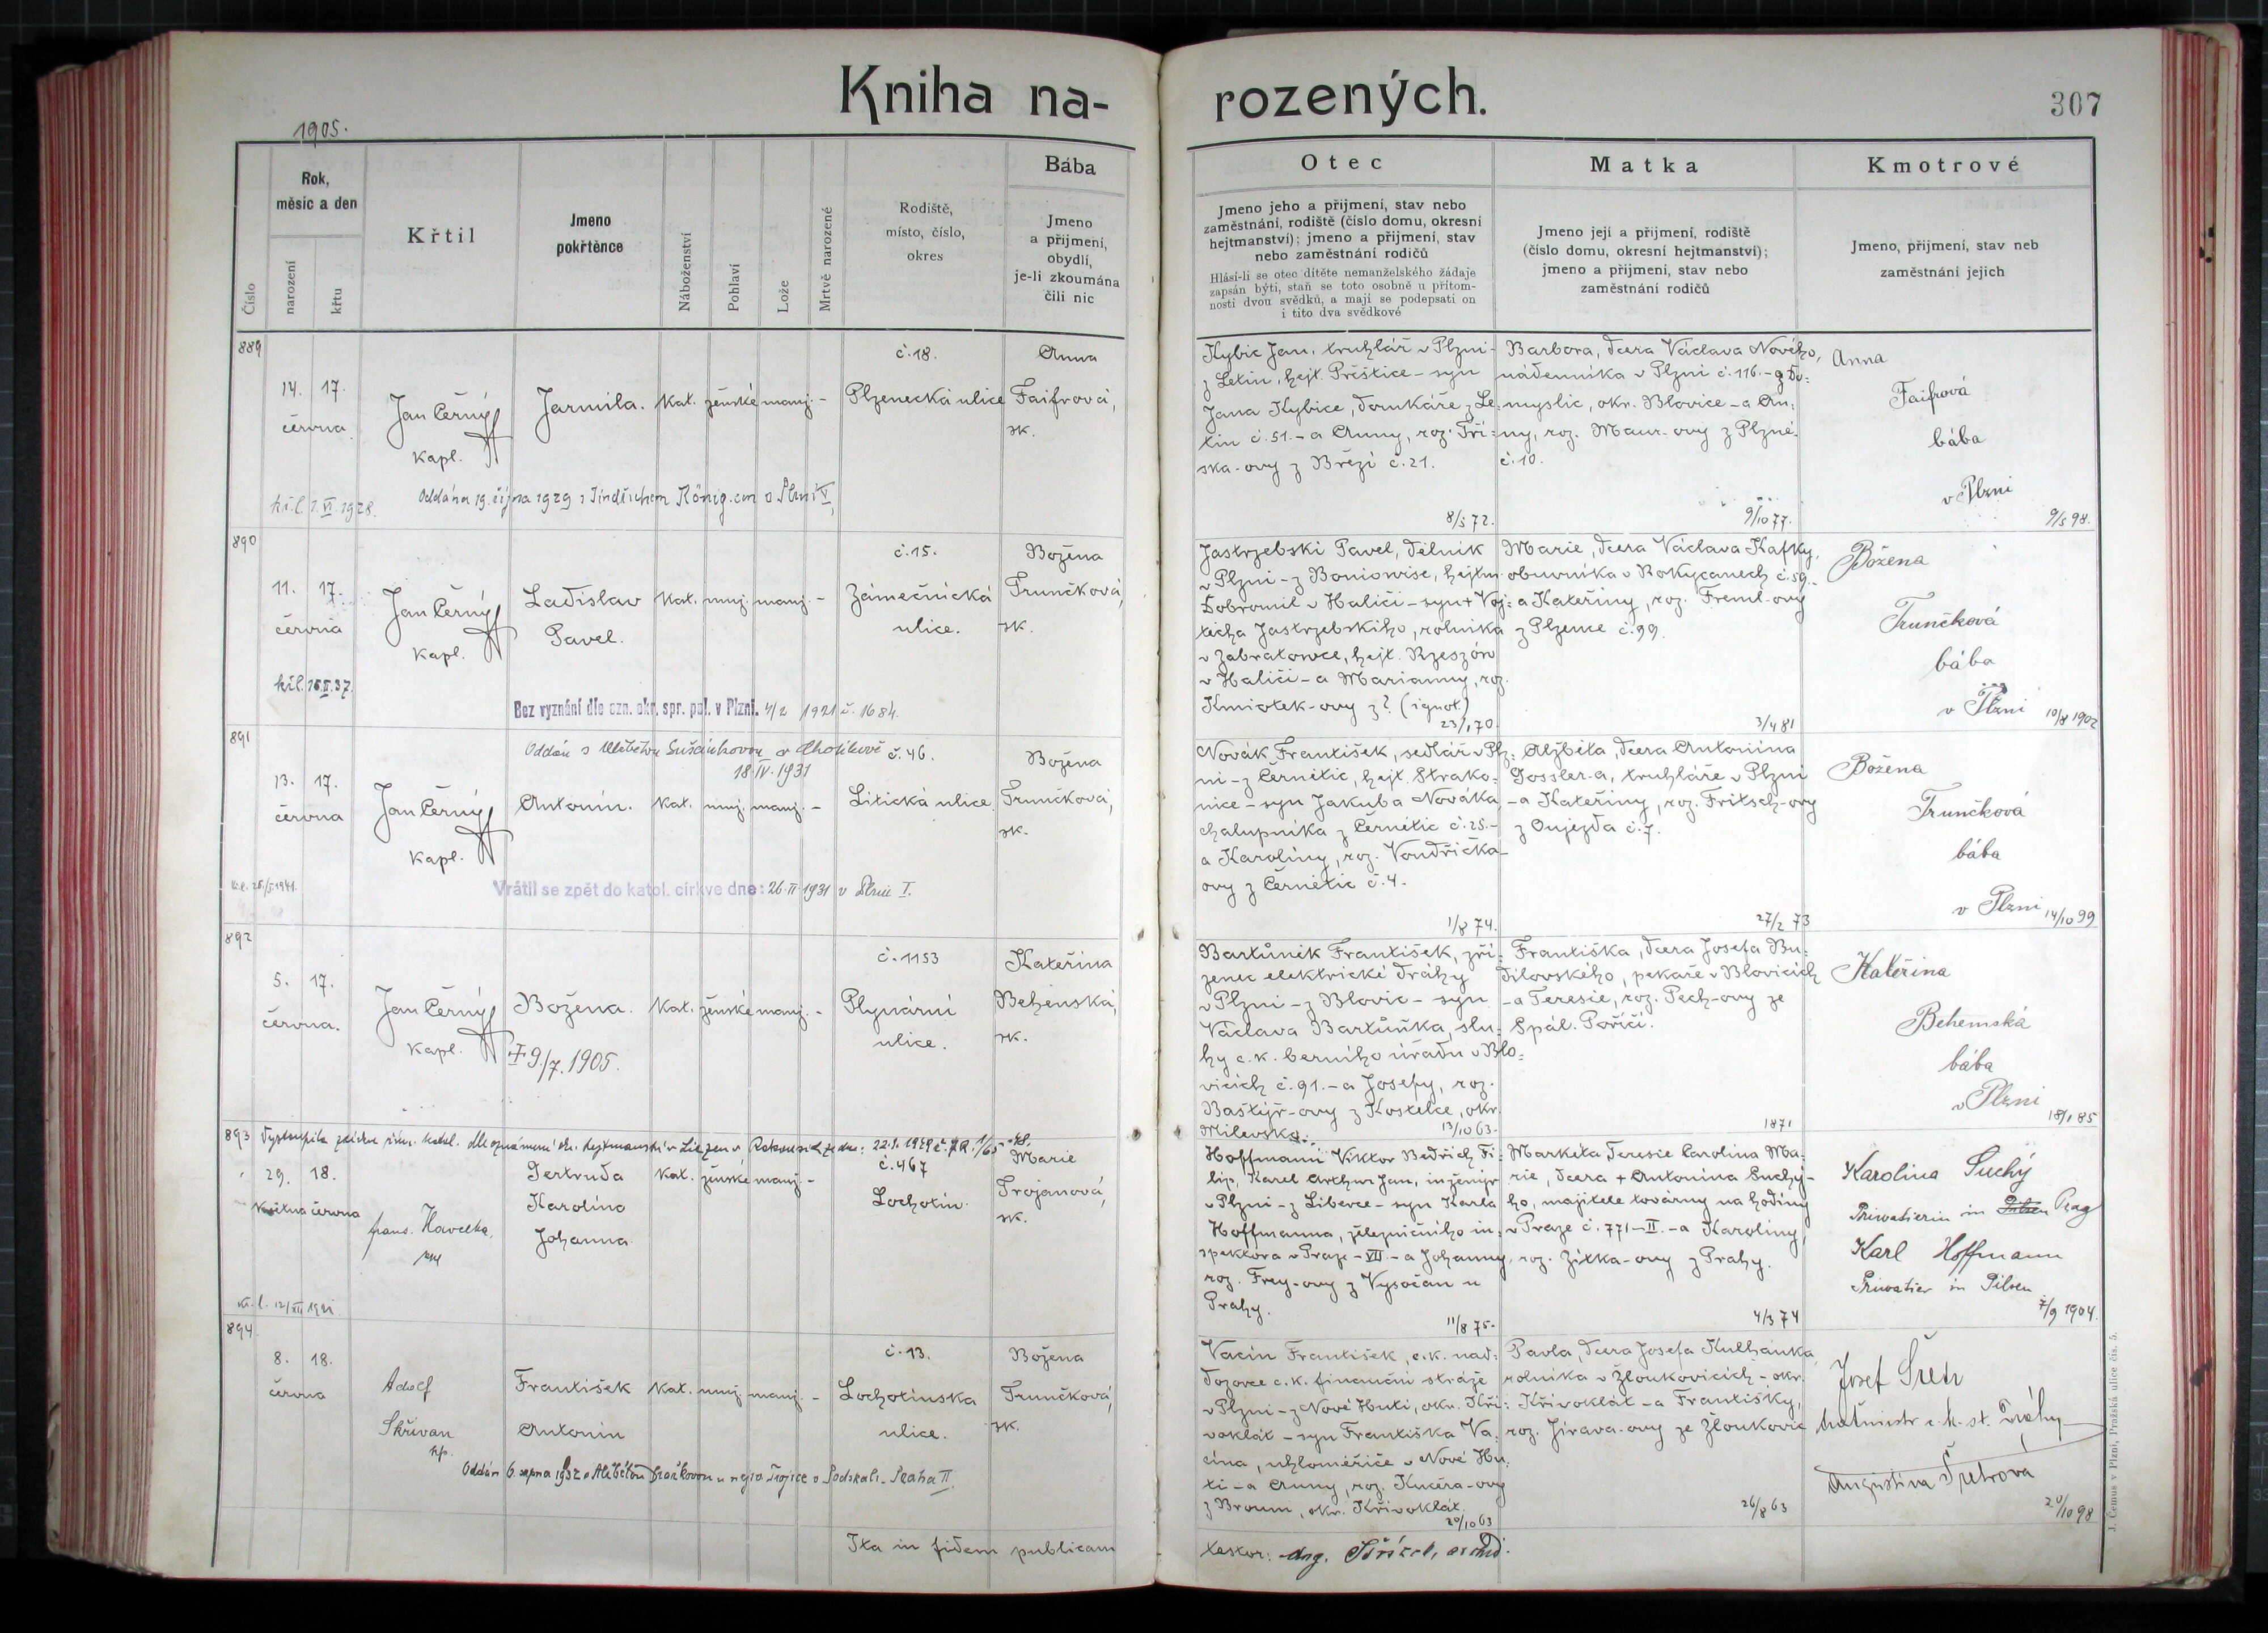 Kniha na-
rozených.
307
1905.
Číslo
Rok,
měsíc a den
narození
křtu
Křtil
Jmeno
pokřtěnce
Náboženství
Pohlaví
Lože
Mrtvě narozené
Rodiště,
místo, číslo,
okres
Bába
Jmeno
a přijmení,
obydlí,
je-li zkoumána
čili nic
Otec
Jmeno jeho a přijmení, stav nebo
zaměstnání, rodiště (číslo domu, okresní
hejtmanství); jmeno a přijmení, stav
nebo zaměstnání rodičů
Hlásí-li se otec dítěte nemanželského žádaje
zapsán býti, staň se toto osobně u přítom-
nosti dvou svědků, a mají se podepsati on
i tito dva svědkové
Matka
Jmeno její a přijmení, rodiště
(číslo domu, okresní hejtmanství);
jmeno a přijmení, stav nebo
zaměstnání rodičů
Kmotrové
Jmeno, přijmení, stav neb
zaměstnání jejich
889
14. 17.
června
Jan Černý
kapl.
Jarmila. kat. ženské manž. -
č. 18.
Plzenecká ulice
Anna
Faifrová,
zk.
Oddána 19. října 1929 s Jindřichem König-em v Plzni V.
Kybic Jan, truhlář v Plzni -
z Letin, hejt. Přeštice - syn
Jana Kybice, domkáře z Le:
tin č. 51. - a Anny, roz. Tří:
ska-ovy z Březí č. 21.
8/5 72.
Barbora, dcera Václava Nového,
nádenníka v Plzni č. 116. - z Do:
myslic, okr. Blovice - a An:
ny, roz. Maur-ovy z Plzně
č. 10.
9/10 77.
Anna
Faifrová
bába
v Plzni
9/5 98.
890
11. 17.
června
Jan Černý
kapl.
Ladislav
Pavel.
kat. muž. manž. -
č. 15.
Zámečnická
ulice.
Božena
Trunčková,
zk.
Bez vyznání dle ozn. okr. spr. pol. v Plzni. 4/2 1921 č. 1684.
Jastrzebski Pavel, dělník
v Plzni - z Boniowise, hejtm.
Dobromil v Haliči - syn + Voj:
těcha Jastrzebského, rolníka
v Zabratowce, hejt. Rzeszów
v Haliči - a Marianny, roz.
Kmiotek-ovy z? (ignot.)
23/1 70.
Marie, dcera Václava Kafky,
obuvníka v Rokycanech č. 59.
- a Kateřiny, roz. Freml-ovy
z Plzence č. 99.
3/4 81
Božena
Trunčková
bába
v Plzni
10/8 1902
891
13. 17.
června
Jan Černý
kapl.
18. IV. 1931
Antonín. kat. muž. manž. -
č. 46.
Litická ulice
Božena
Trunčková,
zk.
Vrátil se zpět do katol. církve dne: 26. II. 1931 v Plzni I.
Novák František, sedlář v Plz:
ni - z Černětic, hejt. Strako:
nice - syn Jakuba Nováka
chalupníka z Černětic č. 25. -
a Karolíny, roz. Vondřička-
ovy z Černětic č. 4.
1/8 74.
Alžběta, dcera Antonína
Gossler-a, truhláře v Plzni
- a Kateřiny, roz. Fritsch-ovy
z Oujezda č. 7.
27/2 73
Božena
Trunčková
bába
v Plzni
14/10 99
892
5. 17.
června.
Jan Černý
kapl.
Božena. kat. ženské manž. -
9/7. 1905.
č. 1153
Plynární
ulice.
Kateřina
Behenská,
zk.
Bartůněk František, zří:
zenec elektrické dráhy
v Plzni - z Blovic - syn
Václava Bartůňka, slu:
hy c. k. berního úřadu v Blo:
vicích č. 91. - a Josefy, roz.
Baštýř-ovy z Kostelce, okr.
Milevsko.
13/10 63.
Františka, dcera Josefa Bu:
dilovského, pekaře v Blovicích
- a Teresie, roz. Pech-ovy ze
Spál. Poříčí.
1871
Kateřina
Behemská
bába
v Plzni
18/1 85
893
29. 18.
května června
Havelka
Gertruda
Karolina
Johanna
kat. ženské manž. -
č. 467
Lochotín.
Marie
Trojanová,
zk.
Hoffmann Viktor Bedřich Fi:
lip, Karel Arthur Jan, inženýr
v Plzni - z Liberce - syn Karla
Hoffmanna, železničního in:
spektora v Praze - VII - a Johanny,
roz. Frey-ovy z Vysočan u
Prahy.
11/8 75.
Markéta Teresie Carolina Ma:
rie, dcera + Antonína Suchý-
ho, majitele továrny na hodiny
v Praze č. 771-II. - a Karoliny,
roz. Zítka-ovy z Prahy.
4/3 74
Karolina Suchý
Privatierin in Pilsen Prag
Karl Hoffmann
Privatier in Pilsen
7/9 1904.
894
8. 18.
června
Adolf
Skřivan
kp.
František
Antonín
kat. muž. manž. -
č. 13.
Lochotínska
ulice.
Božena
Trunčková,
zk.
Vacín František, c. k. nad:
dozorce c. k. finanční stráže
v Plzni - z Nové Huti, okr. Kři:
voklát - syn Františka Va:
cína, uhloměřiče v Nové Hu:
ti - a Anny, roz. Kučera-ovy
z Broum, okr. Křivoklát.
20/10 63
Pavla, dcera Josefa Kulhánka,
rolníka v Žloukovicích - okr.
Křivoklát - a Františky,
roz. Jírava-ovy ze Žloukovic
26/8 63
Josef
Augustina
20/10 98
Ita in fidem publicam
testor:
J. Čemus v Plzni, Pražská ulice čís. 5.